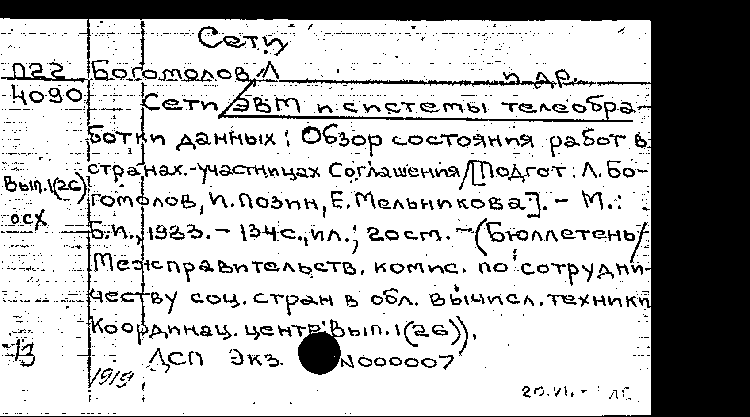 Сети
П22 Богомолов, Л и др.
4090 Сети ЭВМ и системы телеобра-
ботки данных: Обзор состояния работ в
странах-участницах Соглашения/[Подгот.: Л. Бо-
Вып.1(26) гомолов, И. Позин, Е. Мельникова]. - М.:
осх Б.и., 1983. - 134с., ил.; 20см. - (Бюллетень/
Межправительств. комис. по сотрудни-
честву соц. стран в обл. вычисл. техники
Координац. центр; Вып.1(26)).
-13 ДСП Экз. N000007
1919
20.VI.-